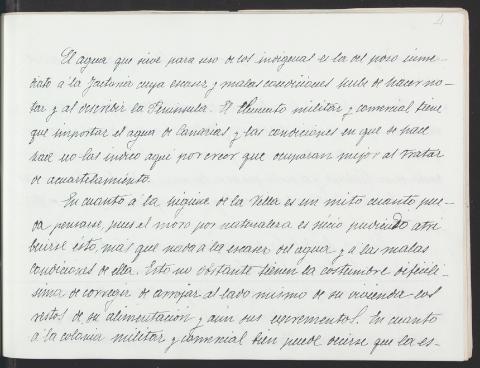 4
El agua que sirve para uso de los indigenas es la del pozo inme-
diato á la Factoria cuya escasez y malas condiciones pude de hacer no-
tar y al describir la Peninsula. El elemento militar y comercial tiene
que importar el agua de Canarias y las condiciones en que se hace
hace no las indico aqui por creer que ocuparan mejor al tratar
de acuartelamiento.
En cuanto á la higiene de la Villa es un mito cuanto pue-
da pensarse, pues el moro por naturaleza es súcio pudiendo atri
buirse esto, más que nada á la escasez del agua y á las malas
condiciones de ella. Esto no obstante tienen la costumbre dificili-
sima de corregir de arrojar al lado mismo de su vivienda los
restos de su alimentación y aun sus excrementos. En cuanto
á la colonia militar y comercial bien puede decirse que la es-